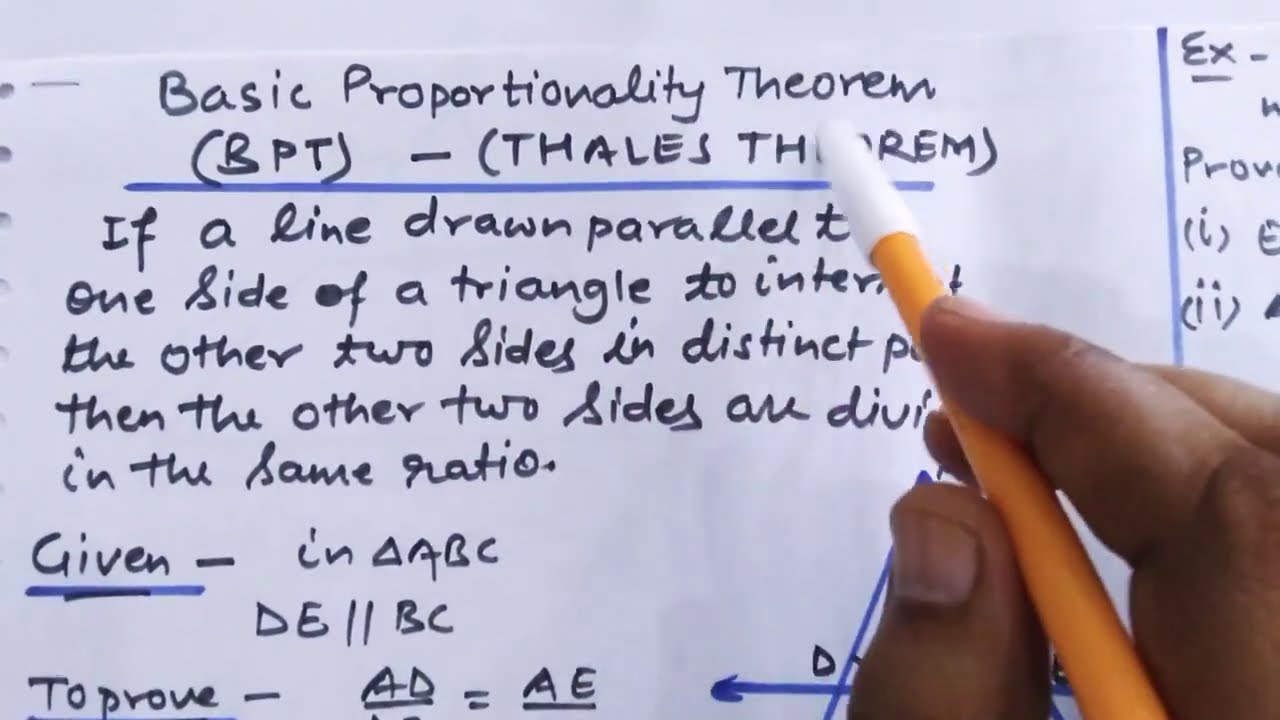 Basic Proportionality Theorem
(BPT) - (THALES THEOREM)
If a line drawn parallel
one side of a triangle to
the other two sides in distinct
then the other two sides are
in the same ratio.
Given - in △ABC
DE || BC
To prove - AD = AE
D
Ex -
(i)
(ii)